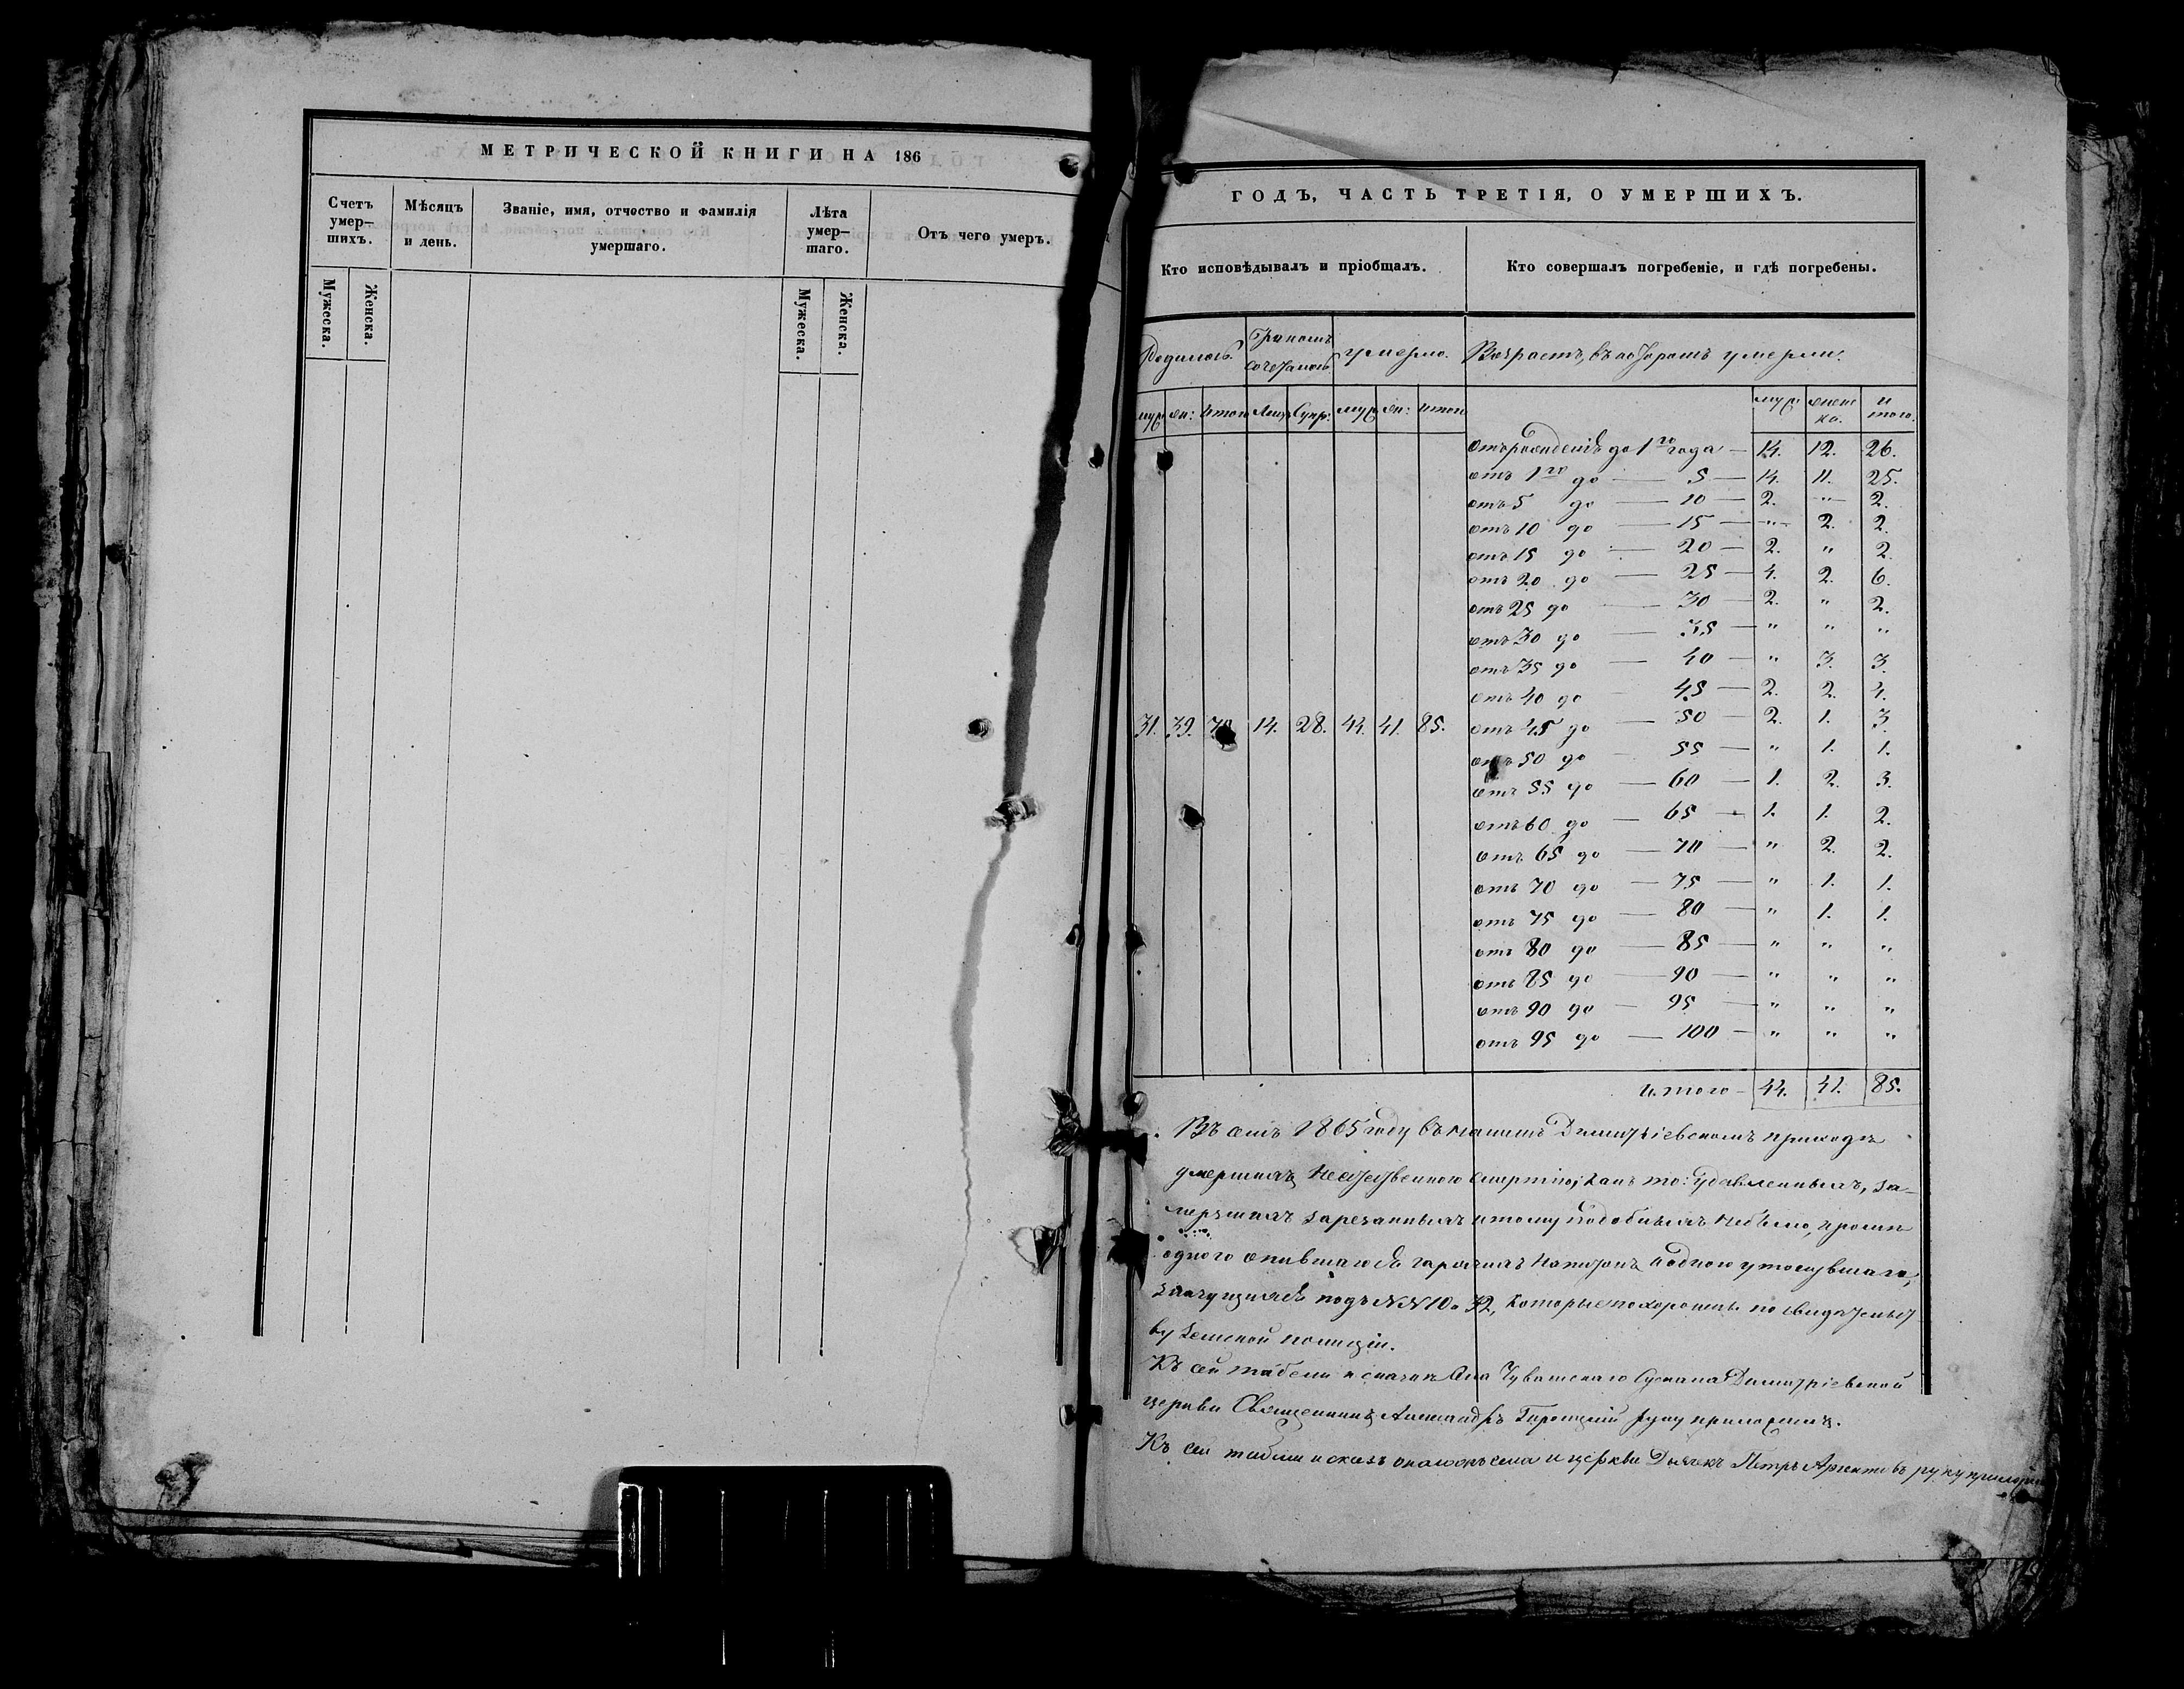 МЕТРИЧЕСКОЙ КНИГИ НА 186
Счетъ умер-шихъ.
Мѣсяцъ и день.
Званіе, имя, отчество и фамилія умершаго.
Лѣта умер-шаго.
Отъ чего умеръ.
Мужеска.
Женска.
Мужеска.
Женска.
ГОДЪ, ЧАСТЬ ТРЕТІЯ, О УМЕРШИХЪ.
Кто исповѣдывалъ и пріобщалъ.
Кто совершалъ погребеніе, и гдѣ погребены.
Родилось. Бракомъ сочеталось умерло. Возрастъ, въ которомъ умерли.
муж: жен: итого Лицъ Супр: муж: жен: итого
муж: женска. итого.
31. 39. 70 14. 28. 44. 41. 85.
Отъ рожденія до 1го года — 14. 12. 26.
отъ 1го до — 5 — 14. 11. 25.
отъ 5 до — 10 — 2. " 2.
отъ 10 до — 15 — " 2. 2.
отъ 15 до — 20 — 2. " 2.
отъ 20 до — 25 — 4. 2. 6.
отъ 25 до — 30 — 2. " 2.
отъ 30 до — 35 — " " "
отъ 35 до — 40 — " 3. 3.
отъ 40 до — 45 — 2. 2. 4.
отъ 45 до — 50 — 2. 1. 3.
отъ 50 до — 55 — " 1. 1.
отъ 55 до — 60 — 1. 2. 3.
отъ 60 до — 65 — 1. 1. 2.
отъ 65 до — 70 — " 2. 2.
отъ 70 до — 75 — " 1. 1.
отъ 75 до — 80 — " 1. 1.
отъ 80 до — 85 — " " "
отъ 85 до — 90 — " " "
отъ 90 до — 95 — " " "
отъ 95 до — 100 — " " "
итого — 44. 41. 85.
Въ семъ 1865 году въ нашемъ Димитріевскомъ приходѣ
умершихъ неестественною смертію, какъ то: удавленныхъ, за-
мерзшихъ зарезанныхъ и тому подобныхъ небыло, кромѣ
одного опившагося горячихъ напитковъ и одного утонувшаго,
значущихся подъ NN 10 и 32, которые похоронены по свидѣтельст
ву земской полиціи.
Къ сей табели и сказкѣ села Чувашскаго Сускана Димитріевской
церкви Священникъ Александръ руку приложилъ.
Къ сей табели и сказкѣ онаго села и церкви Дьячекъ Петръ руку приложилъ